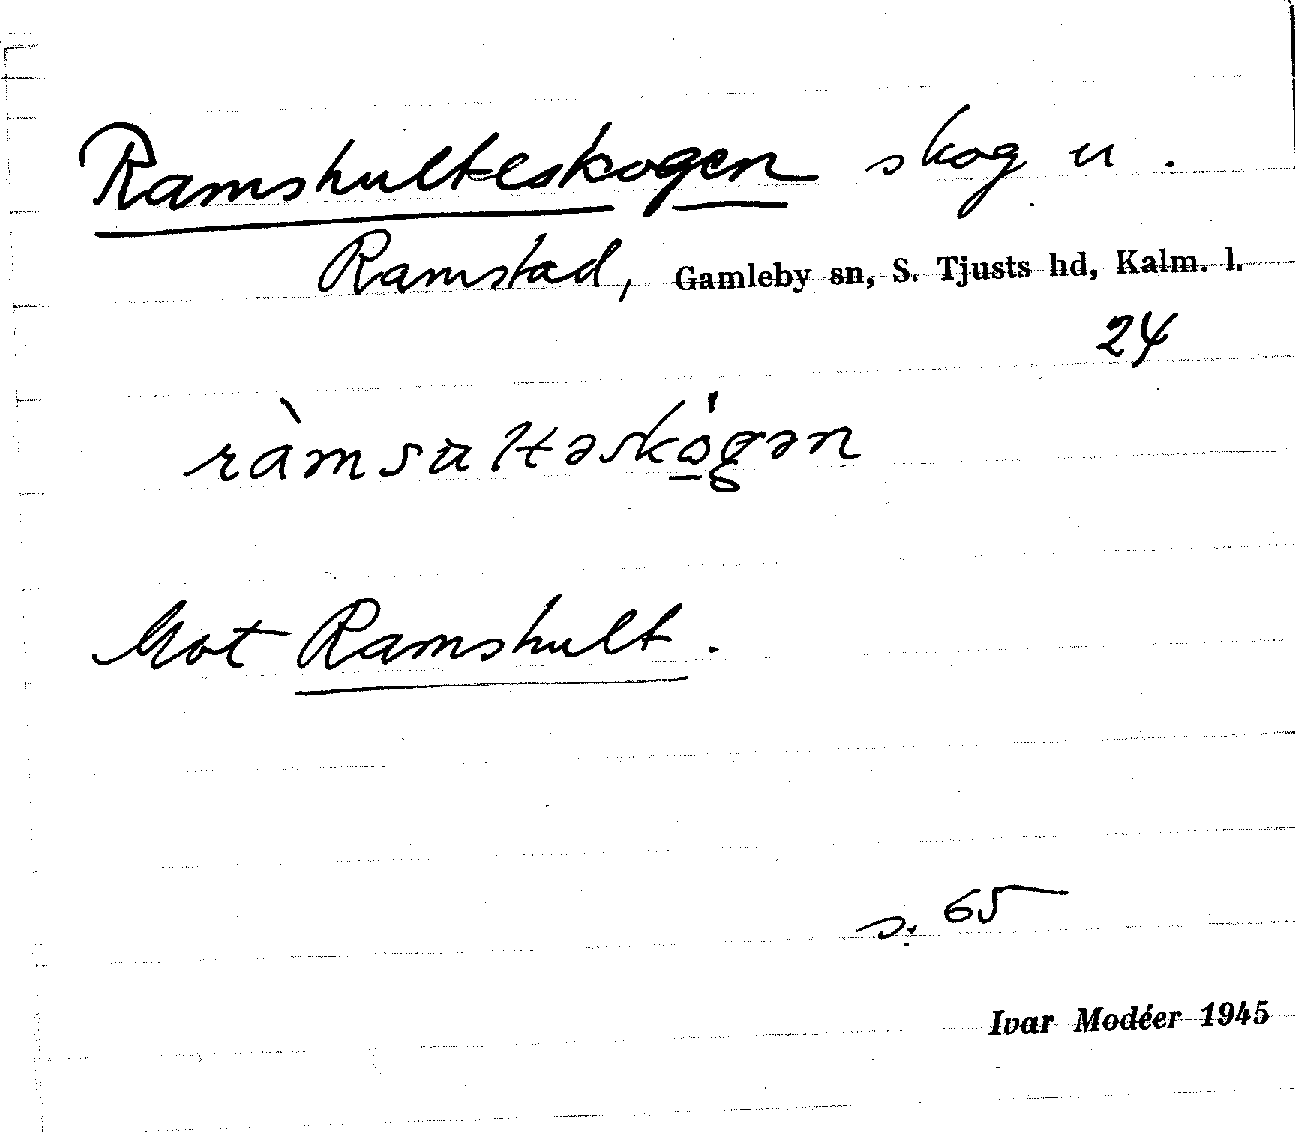 Ramshulteskogen skog u.
Ramstad, Gamleby sn, S. Tjusts hd, Kalm. l.
24
ràmsaltəskógən
Mot Ramshult.
s. 65
Ivar Modéer 1945